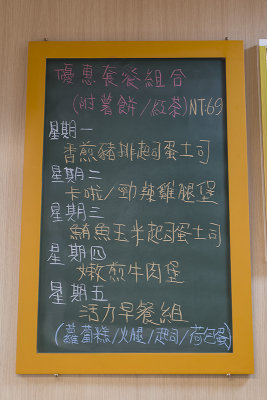 優惠套餐組合
(附薯餅/紅茶)NT69
星期一
香煎豬排起司蛋土司
星期二
卡啦/勁辣雞腿堡
星期三
鮪魚玉米起司蛋土司
星期四
嫩煎牛肉堡
星期五
活力早餐組
(蘿蔔糕/火腿/起司/荷包蛋)